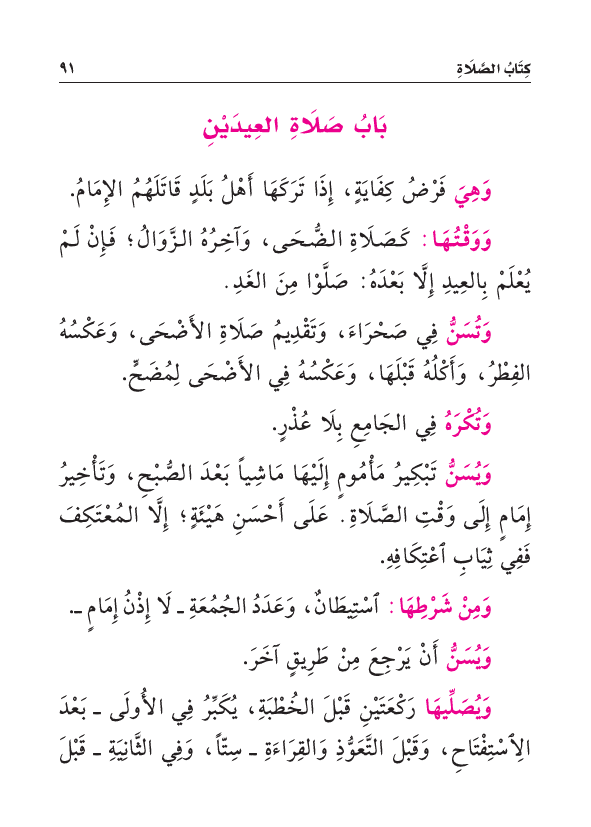 كِتَابُ الصَّلَاةِ ٩١
بَابُ صَلَاةِ العِيدَيْنِ
وَهِيَ فَرْضُ كِفَايَةٍ، إِذَا تَرَكَهَا أَهْلُ بَلَدٍ قَاتَلَهُمُ الإِمَامُ.
وَوَقْتُهَا: كَصَلَاةِ الضُّحَى، وَآخِرُهُ الزَّوَالُ؛ فَإِنْ لَمْ
يُعْلَمْ بِالعِيدِ إِلَّا بَعْدَهُ: صَلَّوْا مِنَ الغَدِ.
وَتُسَنُّ فِي صَحْرَاءَ، وَتَقْدِيمُ صَلَاةِ الأَضْحَى، وَعَكْسُهُ
الفِطْرُ، وَأَكْلُهُ قَبْلَهَا، وَعَكْسُهُ فِي الأَضْحَى لِمُضَحٍّ.
وَتُكْرَهُ فِي الجَامِعِ بِلَا عُذْرٍ.
وَيُسَنُّ تَبْكِيرُ مَأْمُومٍ إِلَيْهَا مَاشِياً بَعْدَ الصُّبْحِ، وَتَأْخِيرُ
إِمَامٍ إِلَى وَقْتِ الصَّلَاةِ. عَلَى أَحْسَنِ هَيْئَةٍ؛ إِلَّا المُعْتَكِفَ
فَفِي ثِيَابِ ٱعْتِكَافِهِ.
وَمِنْ شَرْطِهَا: ٱسْتِيطَانٌ، وَعَدَدُ الجُمُعَةِ ـ لَا إِذْنُ إِمَامٍ ـ.
وَيُسَنُّ أَنْ يَرْجِعَ مِنْ طَرِيقٍ آخَرَ.
وَيُصَلِّيهَا رَكْعَتَيْنِ قَبْلَ الخُطْبَةِ، يُكَبِّرُ فِي الأُولَى ـ بَعْدَ
الِٱسْتِفْتَاحِ، وَقَبْلَ التَّعَوُّذِ وَالقِرَاءَةِ ـ سِتّاً، وَفِي الثَّانِيَةِ ـ قَبْلَ